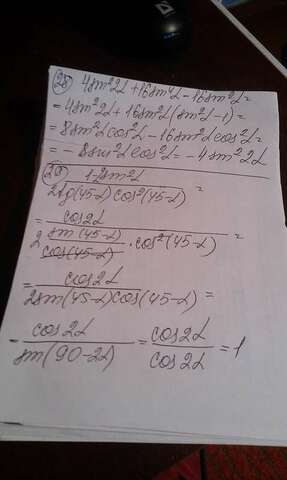 28) 4sin²2α + 16sin⁴α - 16sin²α =
= 4sin²2α + 16sin²α(sin²α - 1) =
= 8sin²α cos²α - 16sin²α cos²α =
= - 8sin²α cos²α = - 4sin²2α
29) (1-2sin²α) / (2tg(45-α) cos²(45-α)) =
= cos2α / (2 sin(45-α)/cos(45-α) · cos²(45-α)) =
= cos2α / (2sin(45-α)cos(45-α)) =
= cos2α / sin(90-2α) = cos2α / cos2α = 1